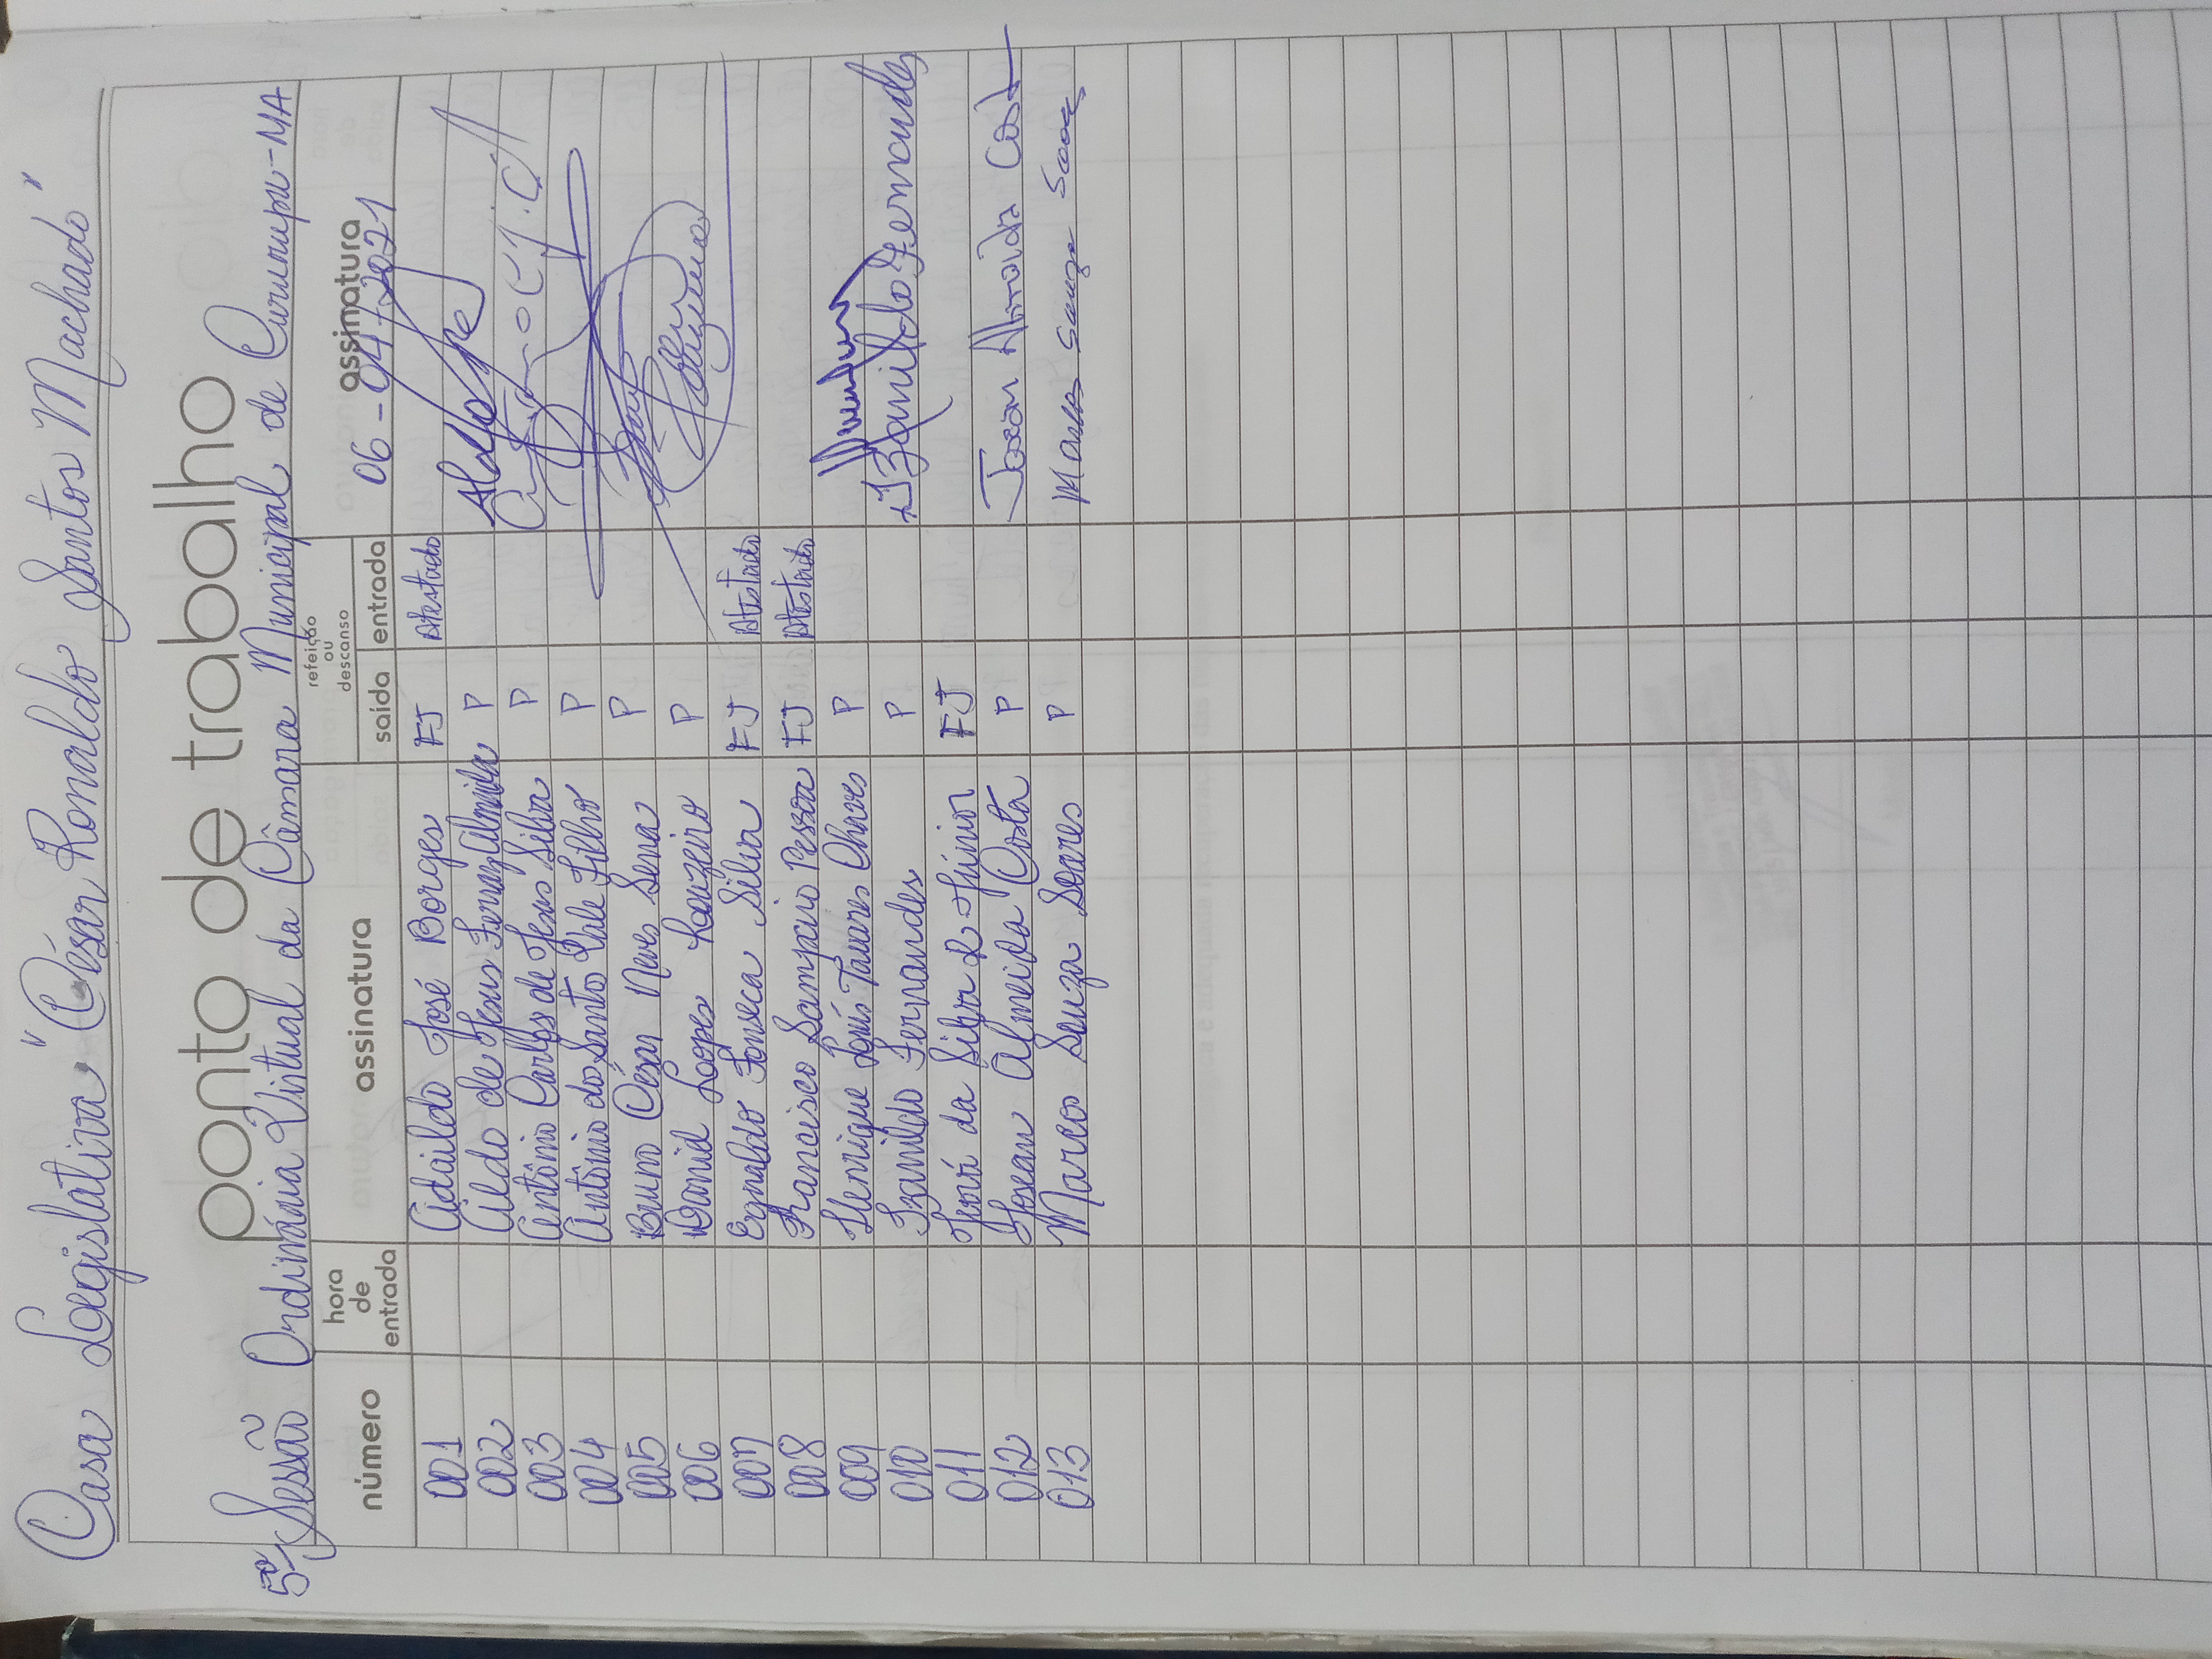 Casa Legislativa "César Ronaldo Santos Machado"
ponto de trabalho
5ª Sessão Ordinária Virtual da Câmara Municipal de Cururupu-MA
número hora de entrada assinatura refeição ou descanso saída entrada assinatura
06-04-2021
001 Adaildo José Borges FJ Atestado
002 Aldo de Jesus Ferraz Almeida P Aldo
003 Antônio Carlos de Jesus Silva P
004 Antônio do Santo Vale Filho P
005 Bruno César Neves Sena P
006 Daniel Lopes Louzeiro P
007 Egnaldo Fonseca Silva FJ Atestado
008 Francisco Sampaio Pessoa FJ Atestado
009 Henrique Luís Tavares Chaves P
010 Izanildo Fernandes P Izanildo Fernandes
011 José da Silva Júnior FJ
012 Josean Almeida Costa P Josean Almeida Cost
013 Marcos Souza Soares P Marcos Souza Soares